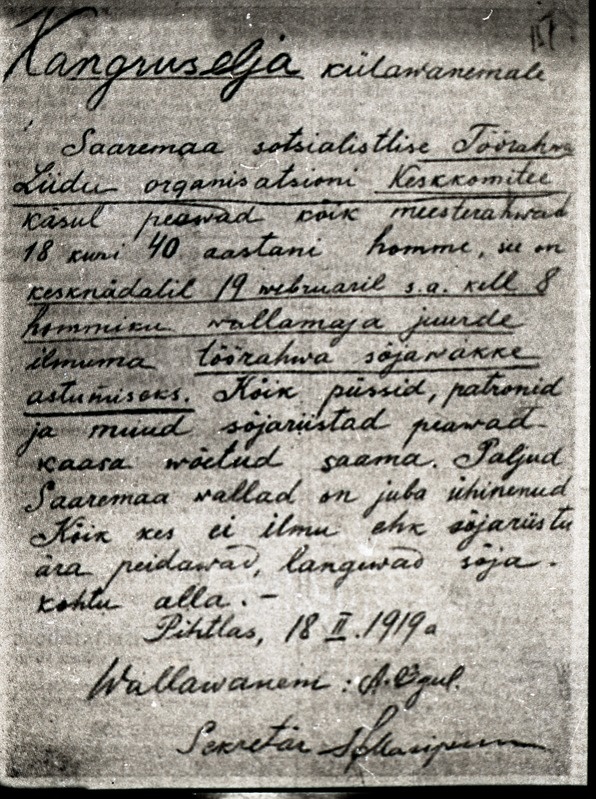 Kangruselja külawanemale
Saaremaa sotsialistlise Töörahwa
Liidu organisatsioni Keskkomitee
käsul peawad kõik meesterahwad
18 kuni 40 aastani homme, se on
kesknädalil 19 webruaril s.a. kell 8
hommiku wallamaja juurde
ilmuma töörahwa sõjawäkke
astumiseks. Kõik püssid, patronid
ja muud sõjariistad peawad
kaasa wõetud saama. Paljud
Saaremaa wallad on juba ühinenud
Kõik kes ei ilmu ehk sõjariistu
ära peidawad, langewad sõja-
kohtu alla. –
Pihtlas, 18 II. 1919 a
Wallawanem: A. Ogul.
Sekretär